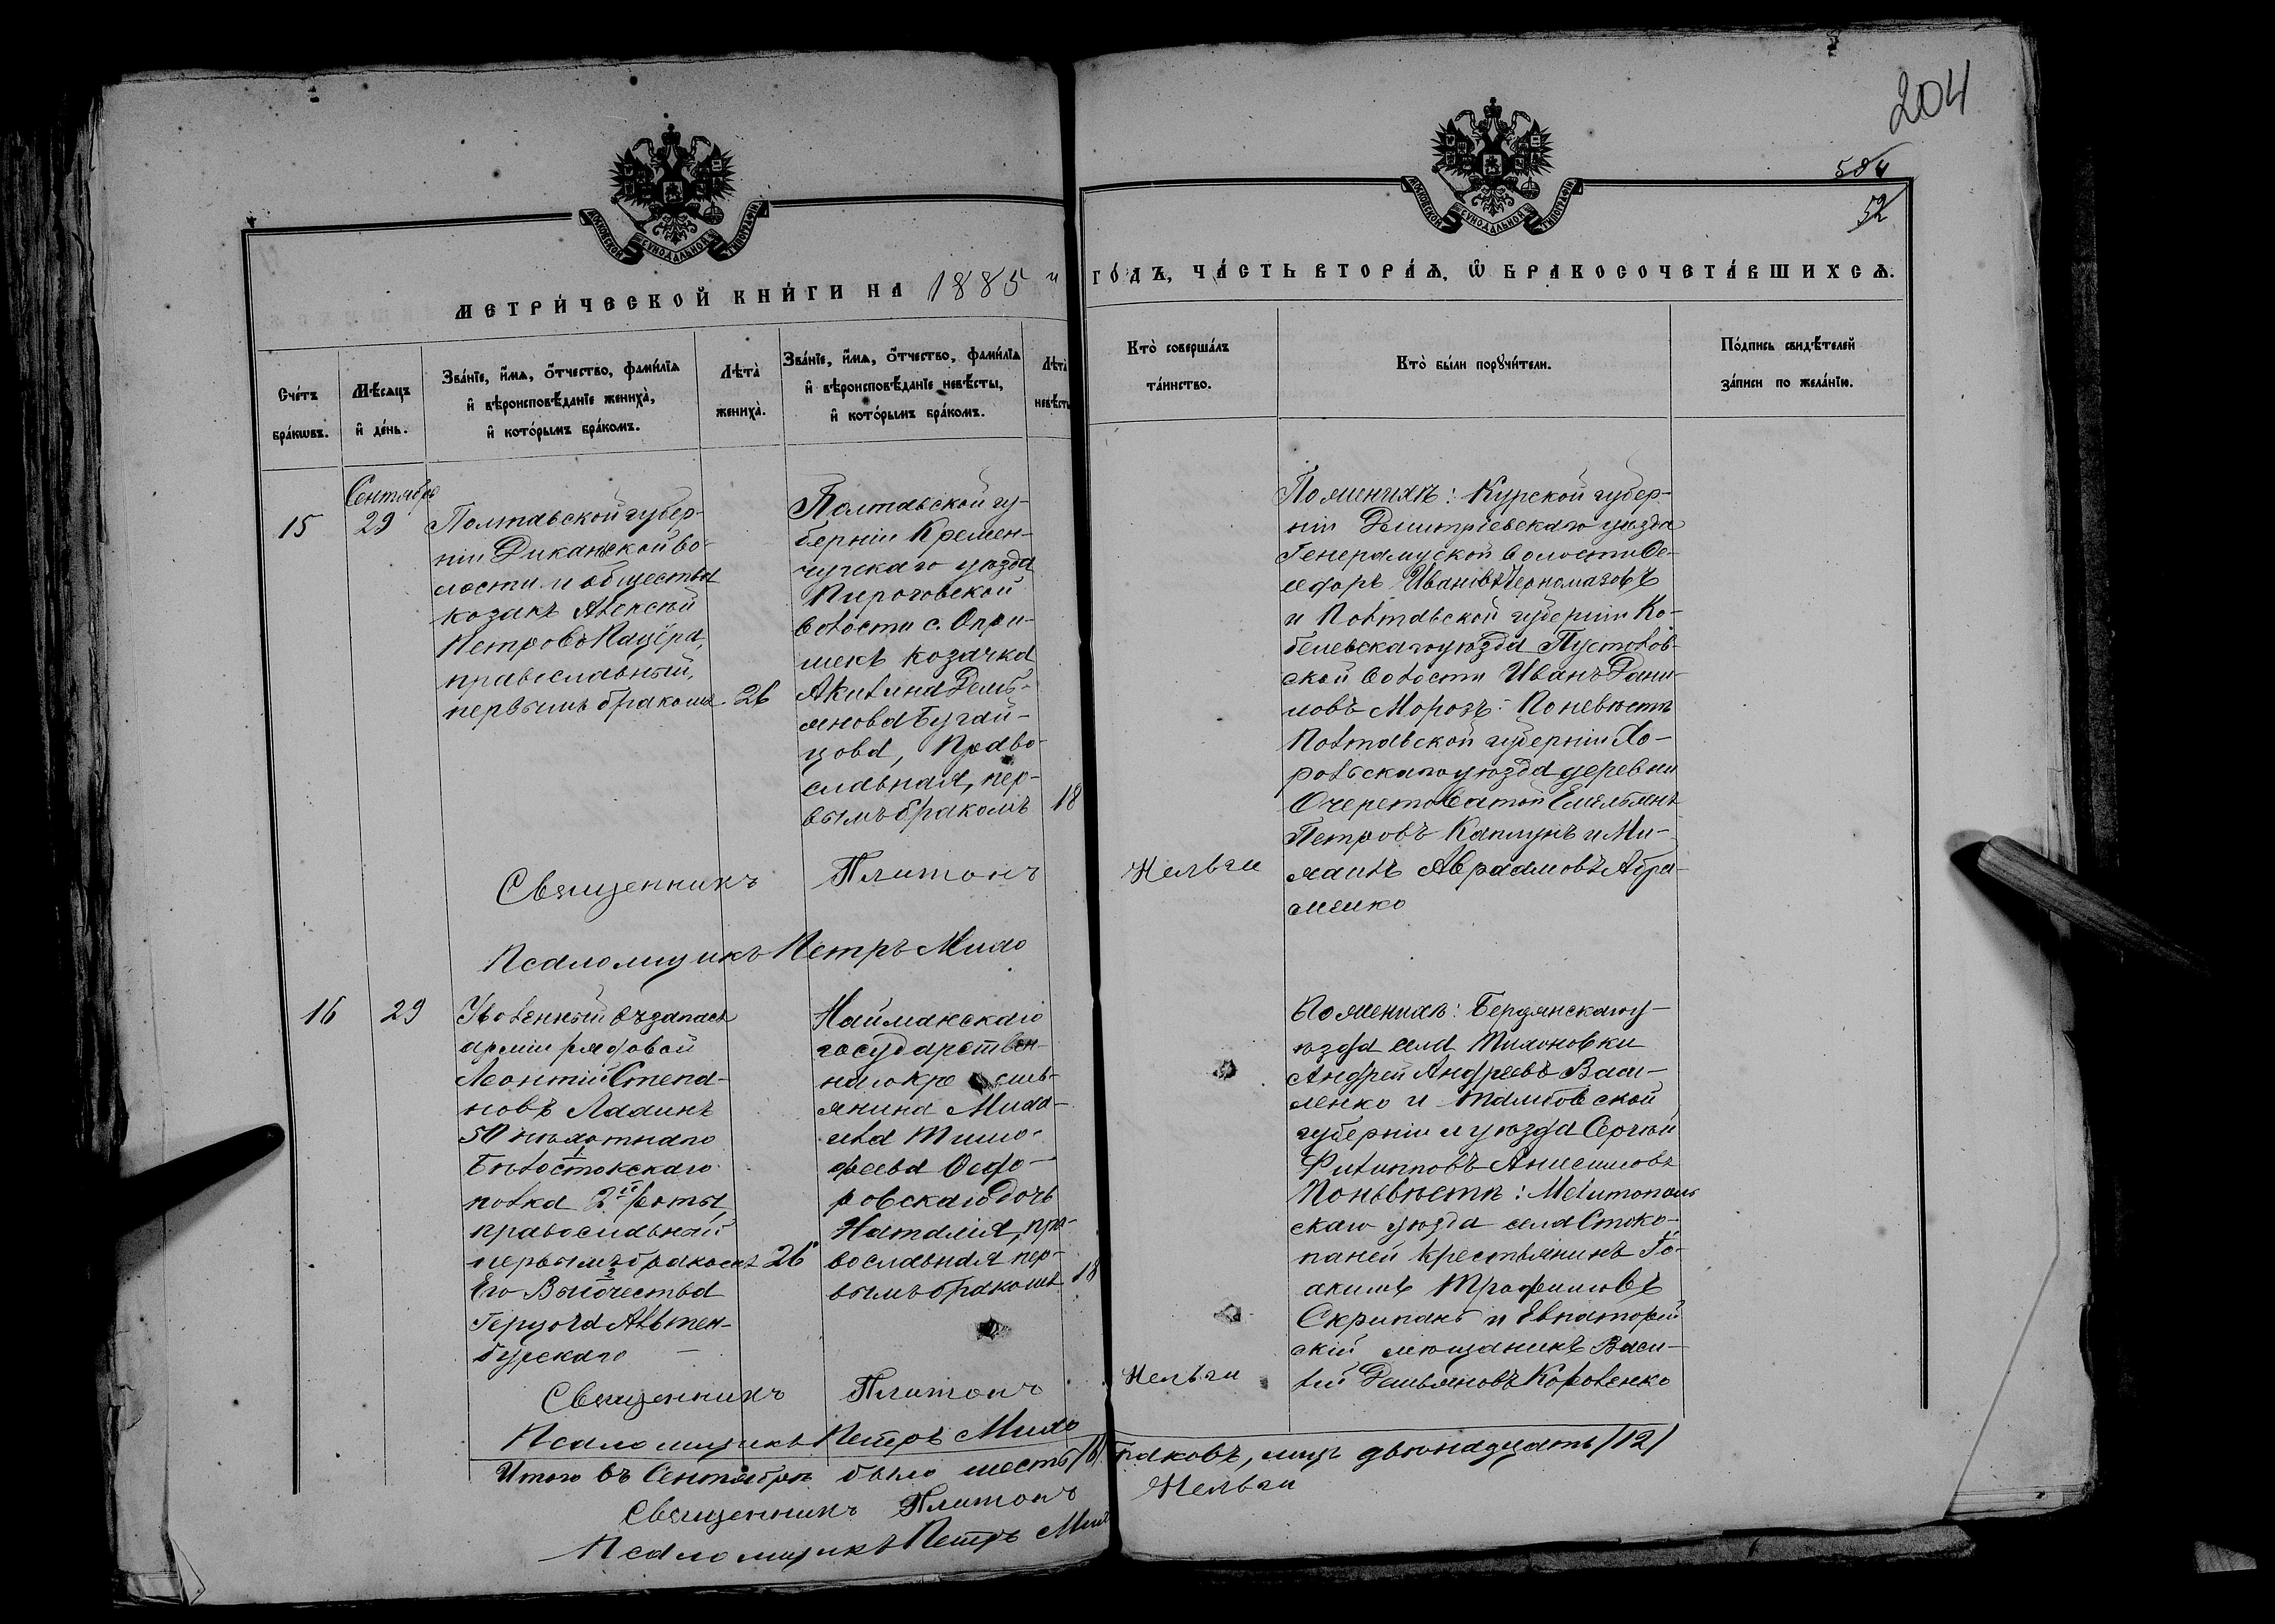 204
584
52
МОСКОВСКОЙ СѴНОДАЛЬНОЙ ТИПОГРАФІИ
МОСКОВСКОЙ СѴНОДАЛЬНОЙ ТИПОГРАФІИ
МЕТРИ́ЧЕСКОЙ КНИ́ГИ НА 1885 й
ГО́ДЪ, ЧА́СТЬ ВТОРА́Ѧ, Ѡ҆ БРАКОСОЧЕТА́ВШИХСѦ.
Сче́тъ бра́кѡвъ.
Мѣ́сяцъ и҆ де́нь.
Зва́нїе, и҆́мѧ, о҆́тчество, фами́лїѧ
и҆ вѣроисповѣ́данїе жениха̀,
и҆ кото́рымъ бра́комъ.
Лѣта̀ жениха̀.
Зва́нїе, и҆́мѧ, о҆́тчество, фами́лїѧ
и҆ вѣроисповѣ́данїе невѣ́сты,
и҆ кото́рымъ бра́комъ.
Лѣта̀ невѣ́сты
Кто̀ соверша́лъ
та́инство.
Кто̀ бы́ли порꙋчи́тели.
По́дпись свидѣ́телей
за́писи по жела́нїю.
Сентября
15
29
Полтавской губер-
ніи Диканской во-
лости и общества
козакъ Алексѣй
Петровъ
православный,
первымъ бракомъ.
26
Полтавской гу-
берніи Кремен-
чугскаго уѣзда
Пироговской
волости с. Опри-
шекъ козачка
Акилина Демь-
янова Бугай-
цова, Право-
славная, пер-
вымъ бракомъ
18
По женихѣ: Курской губер-
ніи Дмитріевскаго уѣзда
волости Ѳе-
одоръ Ивановъ Черномазовъ
и Полтавской губерніи Ко-
белевскаго уѣзда Пустовов-
ской волости Иванъ Дани-
ловъ Морозъ. По невѣстѣ
Полтавской губерніи Хо-
рольскаго уѣзда деревни
Очеретоватой Емельянъ
Петровъ Каплунъ и Ми-
хаилъ Авраамовъ Абра-
менко
Священникъ Платонъ Нельги
Псаломщикъ Петръ Мило
16
29
Уволенный въ запасъ
арміи рядовой
Леонтій Степа-
новъ Ламинъ
50 пѣхотнаго
Бѣлостокскаго
полка 2й роты
православный
первымъ бракомъ
26
Его Высочества
Герцога Альтен-
бургскаго
Найманскаго
государствен-
наго кре сть-
янина Миха-
ила Тимо-
феева Ѳедо-
ровскаго дочь
Наталія, пра-
вославная пер-
вымъ бракомъ
18
По женихѣ: Бердянскаго у-
ѣзда села Тимоновки
Андрей Андреевъ Васи-
ленко и Тамбовской
губерніи и уѣзда Сергѣй
Филипповъ Анисимовъ
По невѣстѣ: Мелитополь
скаго уѣзда села Стоко-
паней крестьянинъ Іо-
акимъ Трофимовъ
Скрипаль и Евпаторій
скій мѣщанинъ Васи-
лій Демьяновъ Короленко
Священникъ Платонъ Нельги
Псаломщикъ Петръ Мило
Итого въ Сентябрѣ было шесть /6/ браковъ, лицъ двѣнадцать /12/
Священникъ Платонъ Нельги
Псаломщикъ Петръ Мило